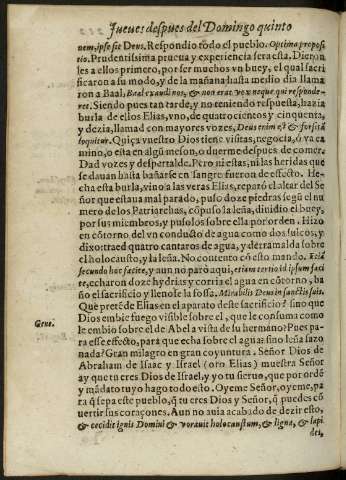 Jueues despues del Domingo quinto
nem, ipse sit Deus. Respondio todo el pueblo. Optima proposi
tio. Prudentissima prueua y experiencia sera esta. Dieron
les a ellos primero, por ser muchos vn buey, el qual sacri
ficaron a su modo, y de la mañana hasta medio dia llama
ron a Baal, Baal exaudi nos, & non erat vox neque qui responde-
ret. Siendo pues tan tarde, y no teniendo respuesta, hazia
burla de ellos Elias, vno, de quatrocientos y cinquenta,
y dezia, llamad con mayores vozes, Deus enim est & forsitā
loquitur. Quiça vuestro Dios tiene visitas, negocia, ó va ca
mino, o esta en algū meson, o duerme despues de comer.
Dad vozes y despertalde. Pero ni estas, ni las heridas que
se dauan hasta bañarse en sangre fueron de effecto. He-
cha esta burla, vino a las veras Elias, reparó el altar del Se
ñor que estaua mal parado, puso doze piedras segū el nu
mero de los Patriarchas, cōpuso la leña, diuidio el buey,
por sus miembros, y pusolos sobre ella por orden. Hizo
en cōtorno del vn conducto de agua como dos sulcos, y
dixo: traed quatro cantaros de agua, y derramalda sobre
el holocausto, y la leña. No contento cō esto mando. Etiā
secundo hoc facite, y aun no paró aqui, etiam tertio id ipsum faci
te, echaron doze hydrias y corria el agua en cōtorno, ba
ño el sacrificio y lleno se la fossa. Mirabilis Deus in sanctis suis.
Que pretēde Elias en el aparato deste sacrificio? sino que
Dios embie fuego visible sobre el, que le consuma como
Gene. le embio sobre el de Abel a vista de su hermano? Pues pa
ra esse effecto, para que echa sobre el agua? sino leña sazo
nada? Gran milagro en gran coyuntura. Señor Dios de
Abraham de Isaac y Israel (oro Elias) muestra Señor
ay que tu eres Dios de Israel, y yo tu sieruo, que por ordē
y mādato tuyo hago todo esto. Oyeme Señor, oyeme, pa
ra q̄ sepa este pueblo, q̄ tu eres Dios y Señor, q̄ puedes cō
uertir sus coraçones. Aun no auia acabado de dezir esto,
& cecidit ignis Domini & vorauit holocaustum, & ligna, & lapi
des,